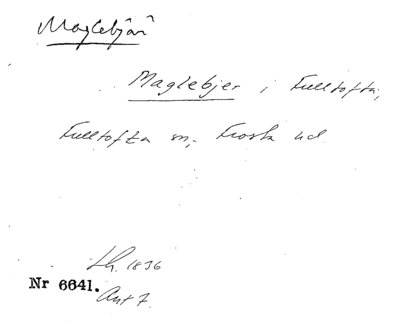 Maglebjär
Maglebjer i Fulltofta,
Fulltofta sn, Frosta hd
Lh. 1836
Nr 6641.
Ant 7.